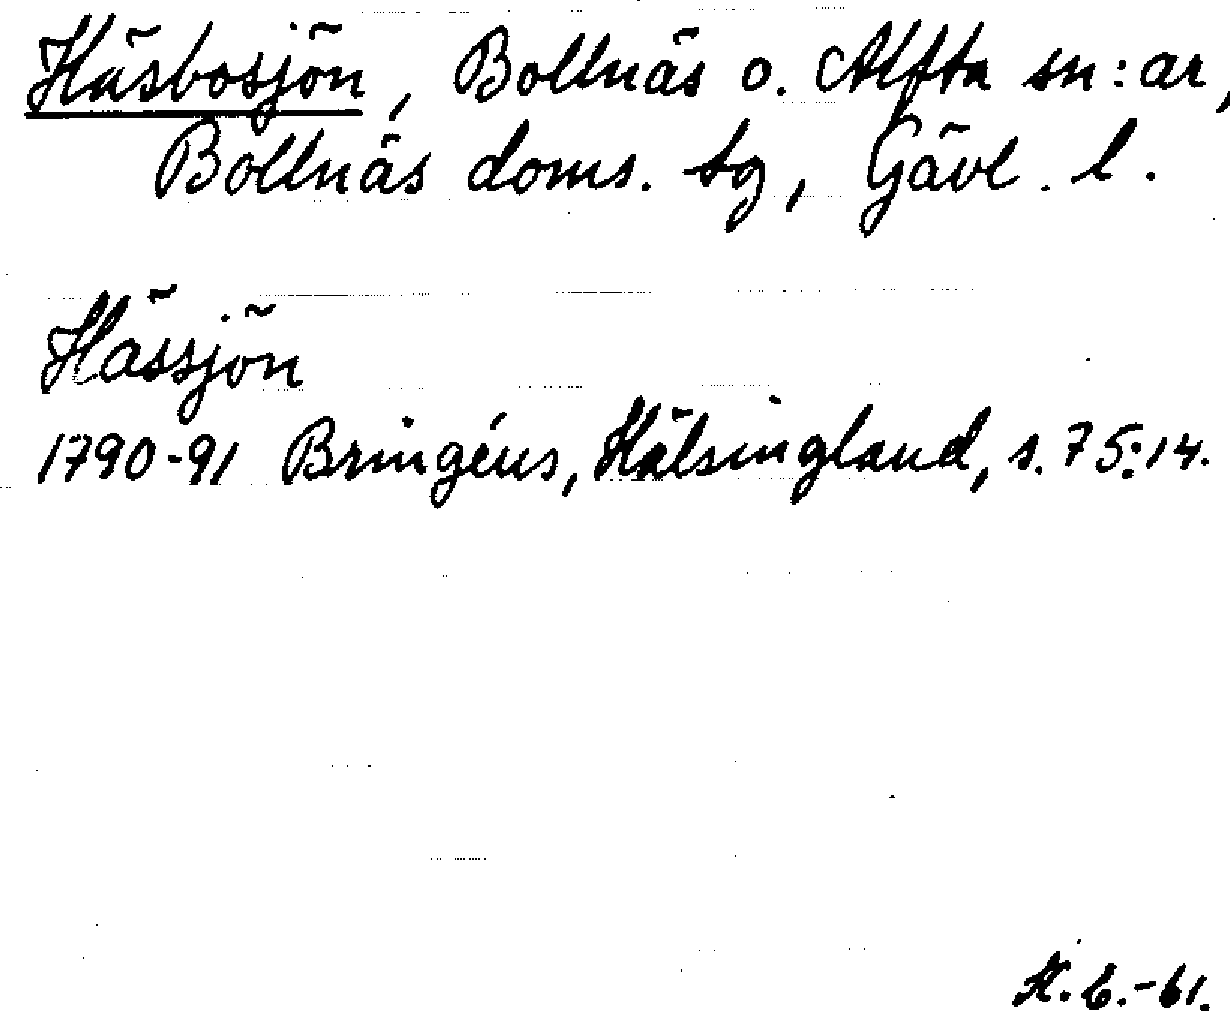 Häsbosjön, Bollnäs o. Alfta sn:ar,
Bollnäs doms. tg, Gävl. l.
Hässjön
1790-91 Bringéus, Hälsingland, s. 75:14.